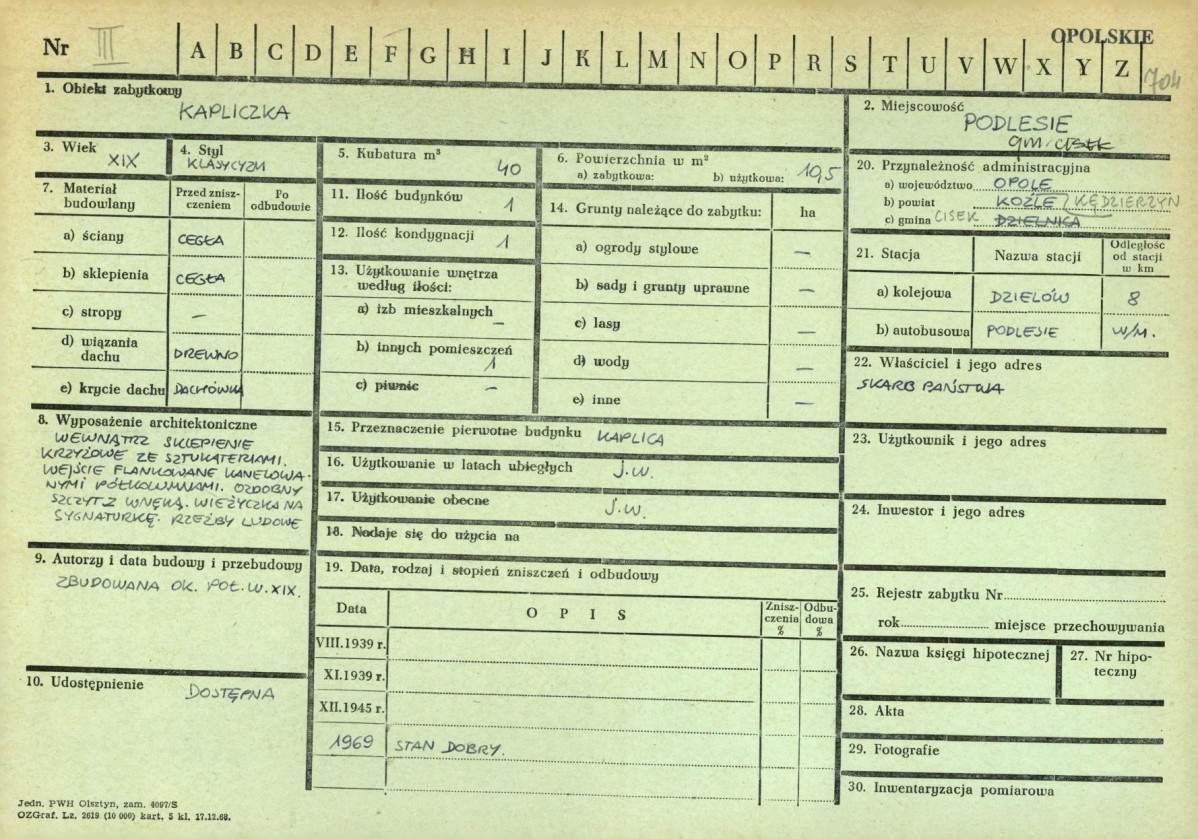 Nr III A B C D E F G H I J K L M N O P R S T U V W X Y Z
OPOLSKIE
704
1. Obiekt zabytkowy
KAPLICZKA
2. Miejscowość
PODLESIE
gm. CISEK
3. Wiek
XIX
4. Styl
KLASYCYZM
5. Kubatura m³
40
6. Powierzchnia w m²
a) zabytkowa: b) użytkowa: 10,5
7. Materiał budowlany
Przed zniszczeniem
Po odbudowie
a) ściany CEGŁA
b) sklepienia CEGŁA
c) stropy –
d) wiązania dachu DREWNO
e) krycie dachu DACHÓWKA
11. Ilość budynków 1
12. Ilość kondygnacji 1
13. Użytkowanie wnętrza
według ilości:
a) izb mieszkalnych –
b) innych pomieszczeń 1
c) piwnic –
14. Grunty należące do zabytku: ha
a) ogrody stylowe –
b) sady i grunty uprawne –
c) lasy –
d) wody –
e) inne –
20. Przynależność administracyjna
a) województwo OPOLE
b) powiat KOŹLE / KĘDZIERZYN
c) gmina CISEK DZIELNICA
21. Stacja Nazwa stacji Odległość
od stacji
w km
a) kolejowa DZIELÓW 8
b) autobusowa PODLESIE W/M.
22. Właściciel i jego adres
SKARB PAŃSTWA
8. Wyposażenie architektoniczne
WEWNĄTRZ SKLEPIENIE
KRZYŻOWE ZE SZTUKATERIAMI.
WEJŚCIE FLANKOWANE KANELOWA-
NYMI PÓŁKOLUMNAMI. OZDOBNY
SZCZYT Z WNĘKĄ. WIEŻYCZKA NA
SYGNATURKĘ. RZEŹBY LUDOWE
15. Przeznaczenie pierwotne budynku KAPLICA
16. Użytkowanie w latach ubiegłych J.W.
17. Użytkowanie obecne J.W.
18. Nadaje się do użycia na
23. Użytkownik i jego adres
24. Inwestor i jego adres
9. Autorzy i data budowy i przebudowy
ZBUDOWANA OK. POŁ. W. XIX.
19. Data, rodzaj i stopień zniszczeń i odbudowy
Data OPIS Zniszczenia % Odbudowa %
VIII.1939 r.
XI.1939 r.
XII.1945 r.
1969 STAN DOBRY.
25. Rejestr zabytku Nr
rok miejsce przechowywania
26. Nazwa księgi hipotecznej
27. Nr hipoteczny
10. Udostępnienie
DOSTĘPNA
28. Akta
29. Fotografie
30. Inwentaryzacja pomiarowa
Jedn. PWH Olsztyn, zam. 4097/S
OZGraf. Lz. 2619 (10 000) kart. 5 kl. 17.12.68.